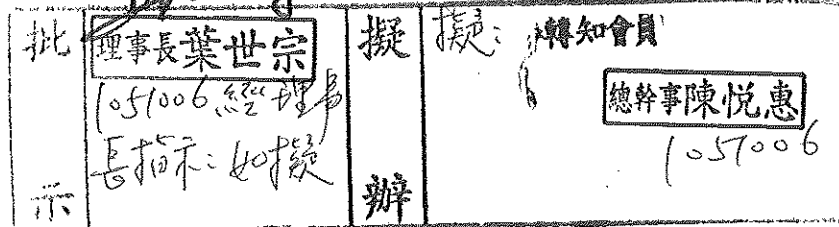 批示
理事長葉世宗
1051006經理事
長指示：如擬
擬辦
擬：轉知會員
總幹事陳悦惠
1051006